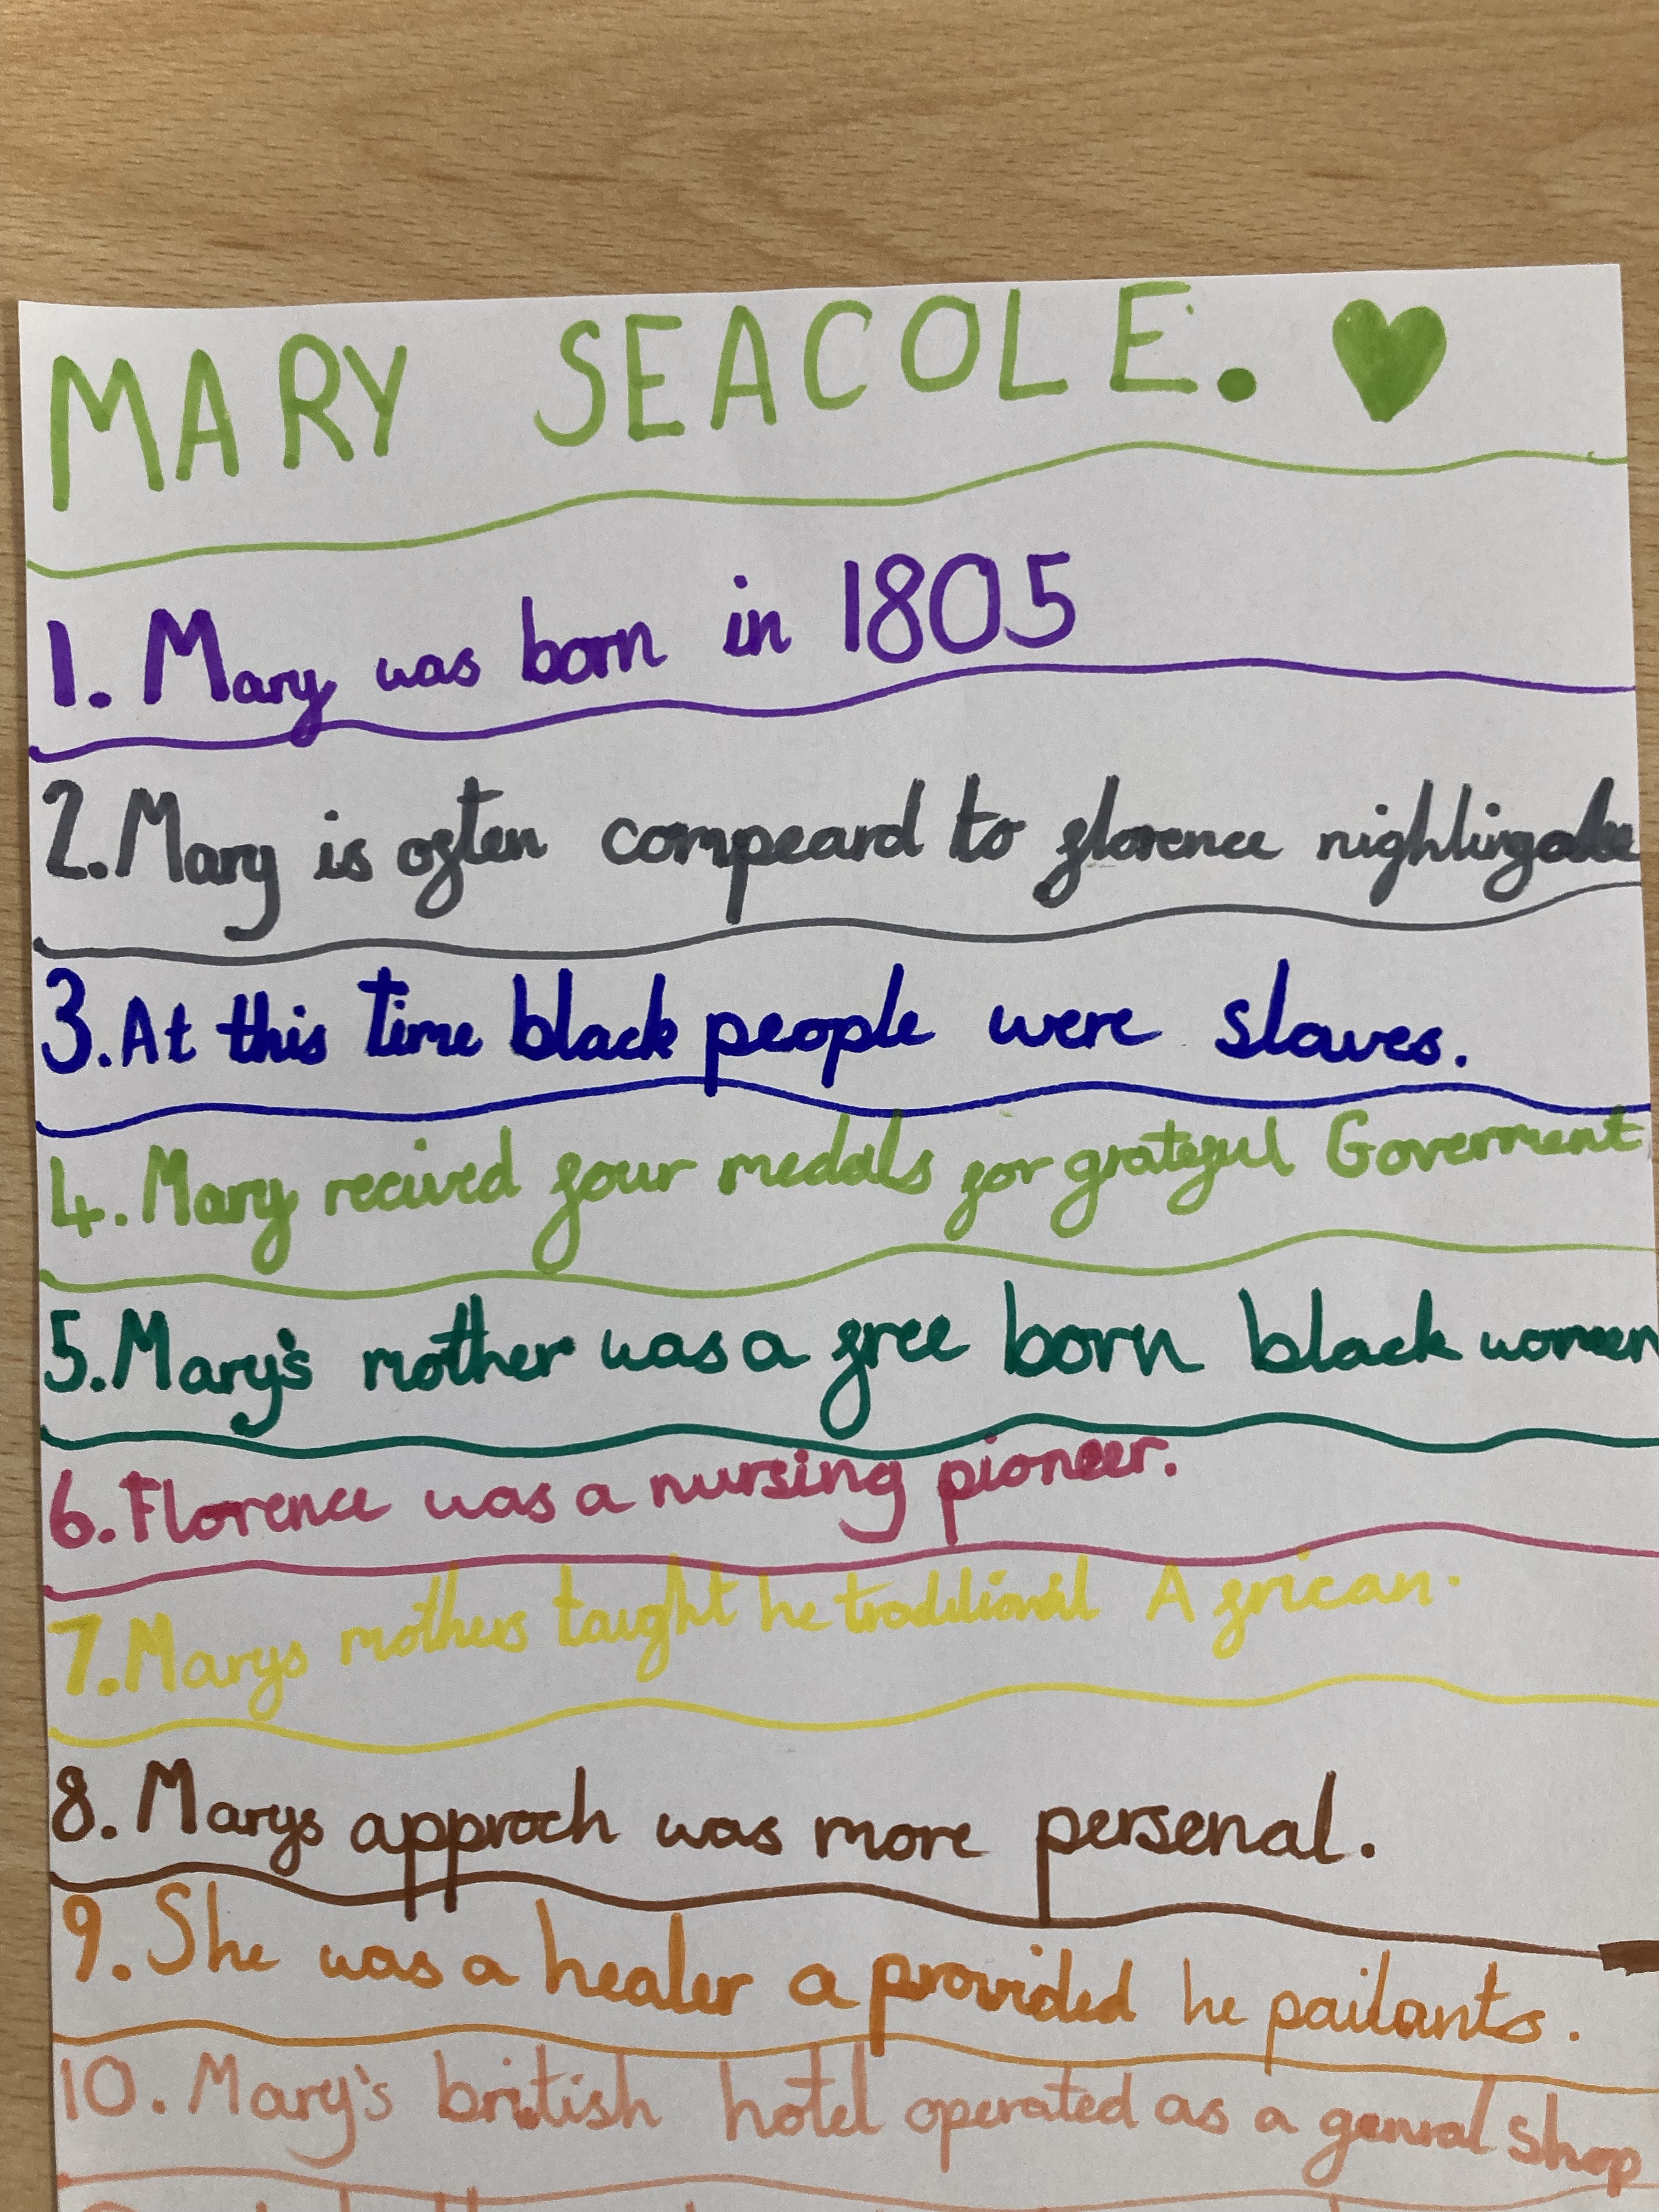 MARY SEACOLE.
1. Mary was born in 1805
2. Mary is often compeard to florence nightingale
3. At this time black people were slaves.
4. Mary recived four medals for grateful Goverment
5. Mary's mother was a free born black women
6. Florence was a nursing pioneer.
7. Marys mothers taught he traditional African.
8. Marys approch was more personal.
9. She was a healer a provided he paitants.
10. Mary's british hotel operated as a genral shop